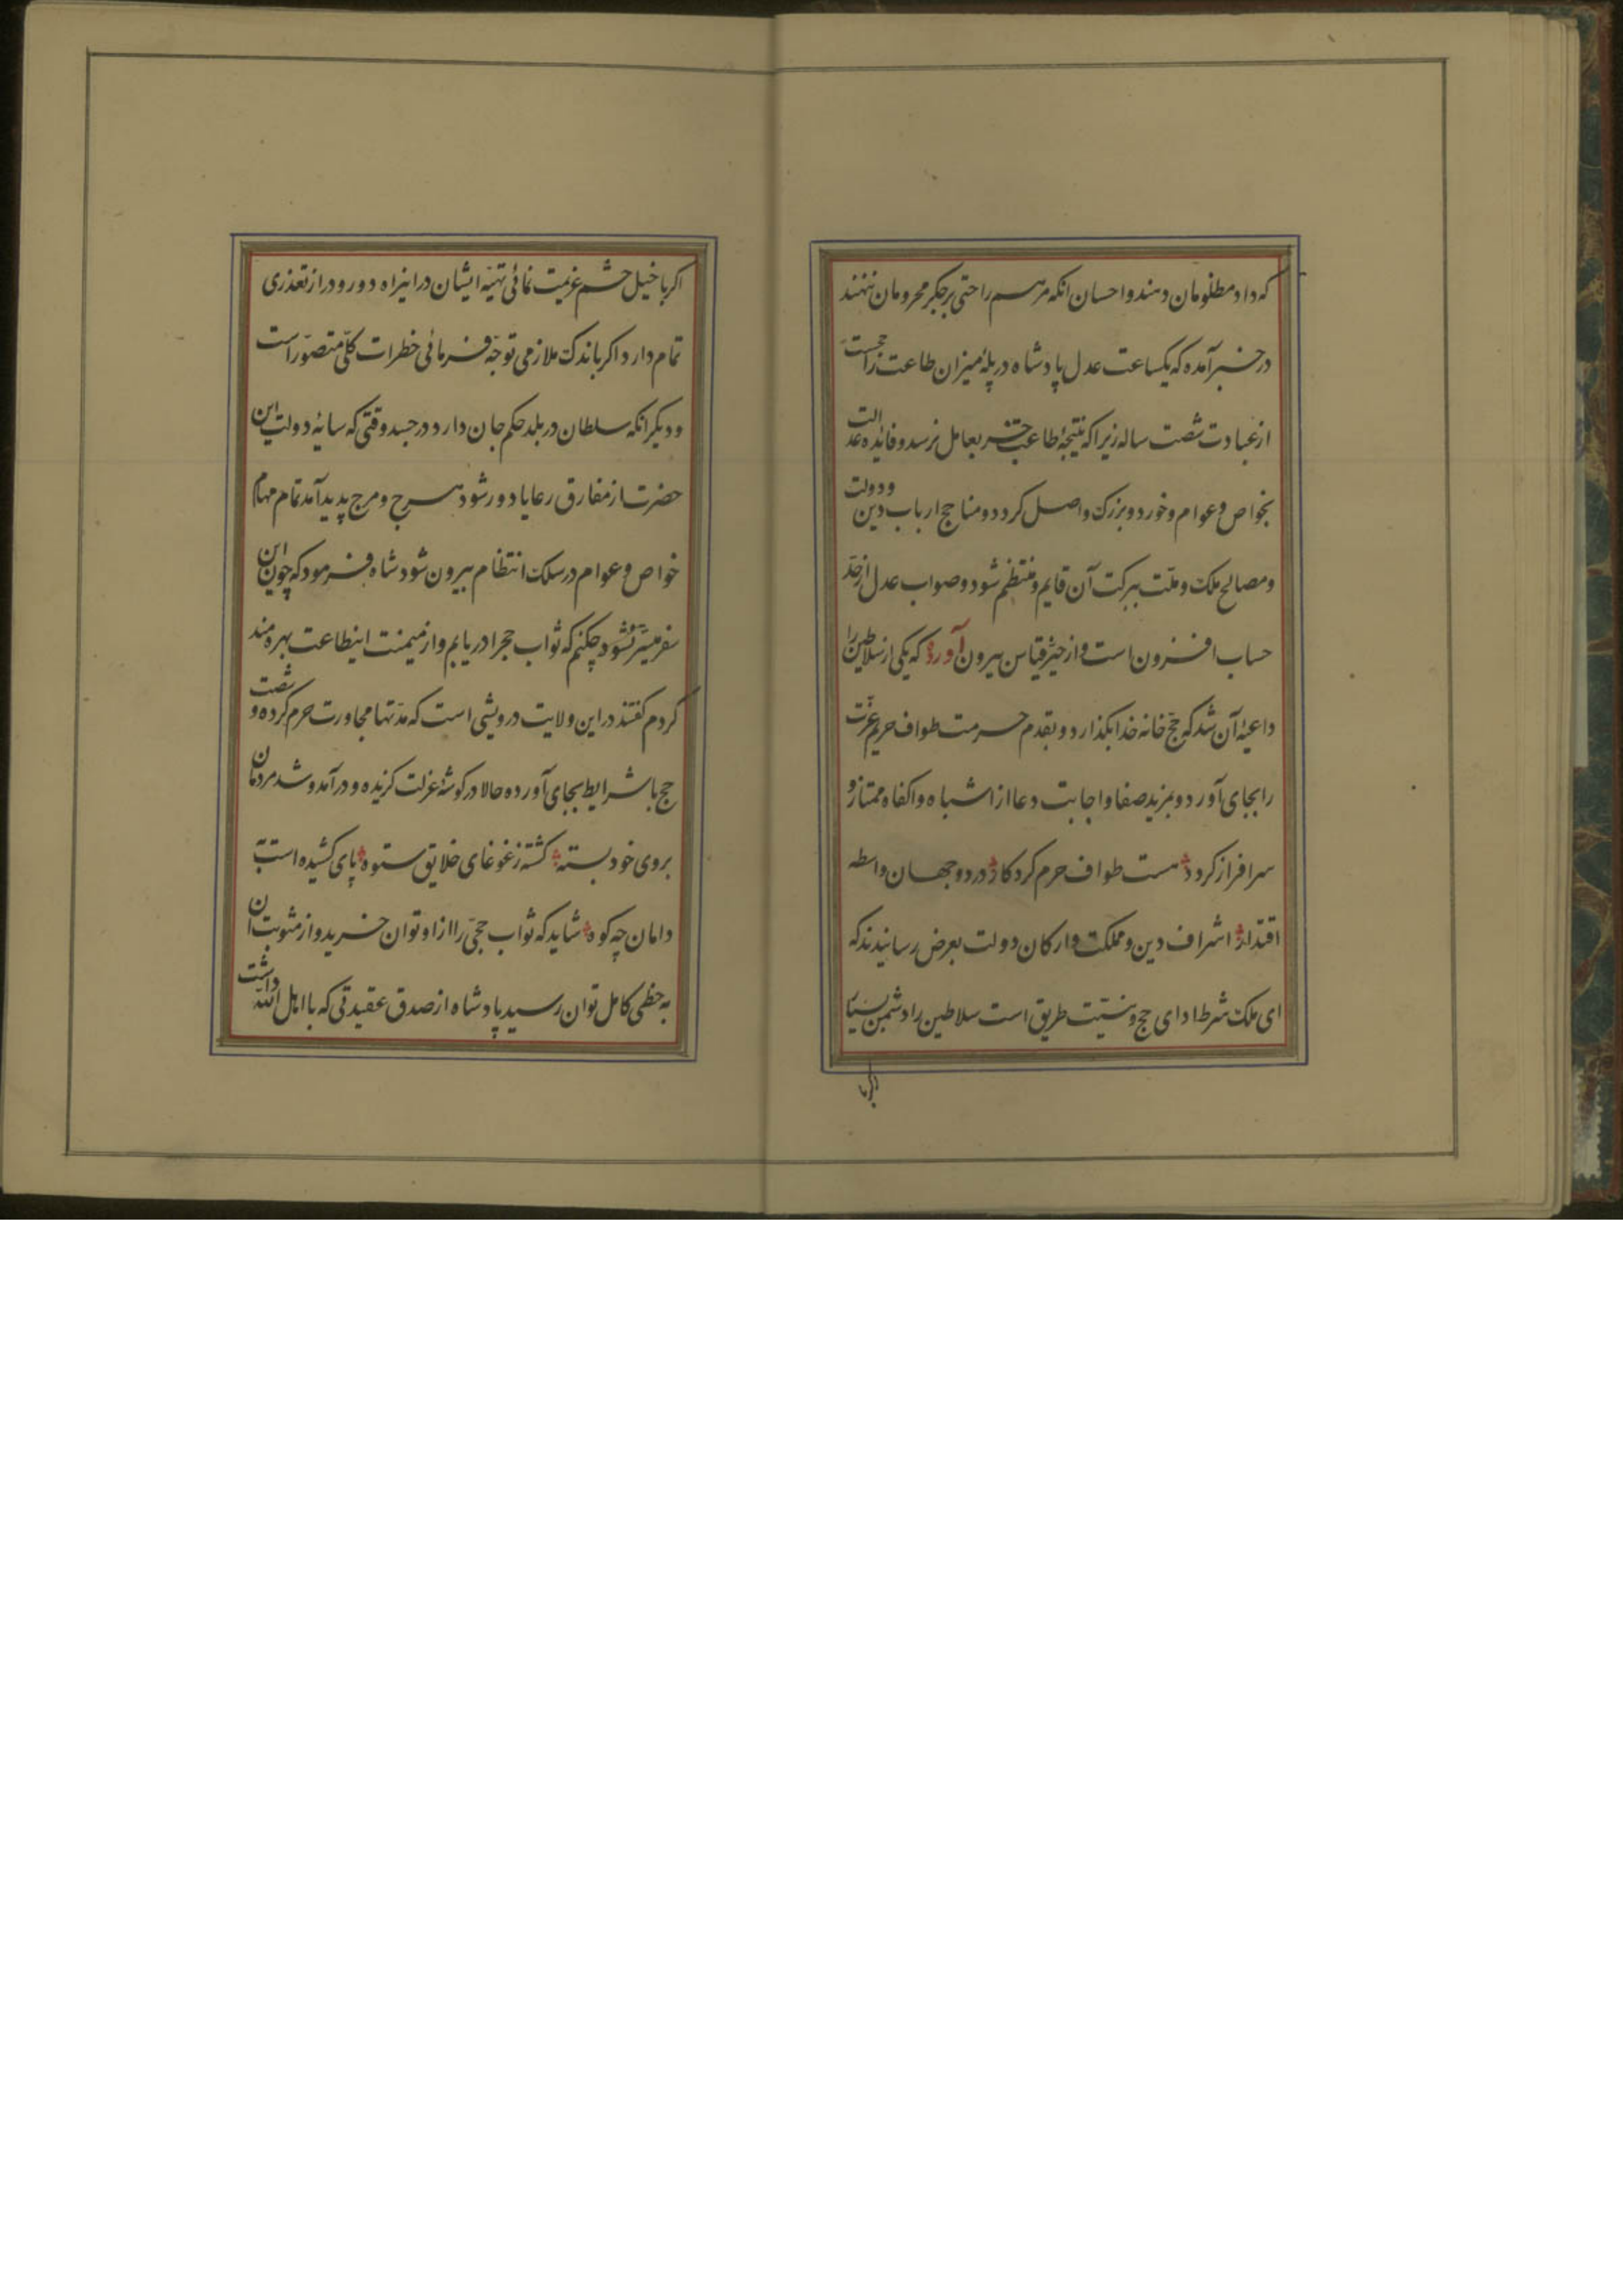 که داد مظلومان دهند و احسان انکه مرهم راحتی بر جکر محرومان ننهند
در خبر آمده که یکساعت عدل پادشاه در پلهٔ میزان طاعت راجحست
از عبادت شصت ساله زیرا که نتیجهٔ طاعت جز بعامل نرسد و فائده عدالت
بخواص و عوام و خورد و بزرک واصل کردد و مناجح ارباب دین و دولت
و مصالح ملک و ملت ببرکت آن قایم و منتظم شود و صواب عدل از حد
حساب افزون است و از حیز قیاس بیرون آورد که یکی از سلاطین را
داعیهٔ آن شد که حج خانه خدا بکذارد و بقدم حرمت طواف حریم عزت
را بجای آورد و بمزید صفا و اجابت دعا از اشباه و اکفاه ممتاز و
سرافراز کردد هست طواف حرم کردکار در دو جهان واسطه
اقتدار اشراف دین و مملکت و ارکان دولت بعرض رسانیدند که
ای ملک شرط ادای حج و طریق است سلاطین را دشمن
اکر با
اکر با خیل حشم عزیمت نمائی تهیّه ایشان در اینراه دور و دراز تعذری
تمام دارد اکر باندک ملازمی توجّه فرمائی خطرات کلّی متصوّر است
و دیکر انکه سلطان در بلد حکم جان دارد در جسد وقتی که سایهٔ دولت این
حضرت از مفارق رعایا دور شود هرج و مرج پدید آمد تمام مهام
خواص و عوام در سلک انتظام بیرون شود شاه فرمود که چون این
سفر میسّر نشود چکنم که ثواب حجرا دریابم و از میمنت اینطاعت بهره مند
کردم کفتند در این ولایت درویشی است که مدّتها مجاورت حرم کرده و شصت
حج با شرایط بجای آورده حالا در کوشهٔ عزلت کزیده و در آمد و شد مردمان
بروی خود بسته کشته ز غوغای خلایق ستوه پای کشیده است
دامان چه کوه شاید که ثواب حجّی را از او توان خرید و از مثوبت آن
به حظی کامل توان رسید پادشاه از صدق عقیدتی که با اهل الله داشت